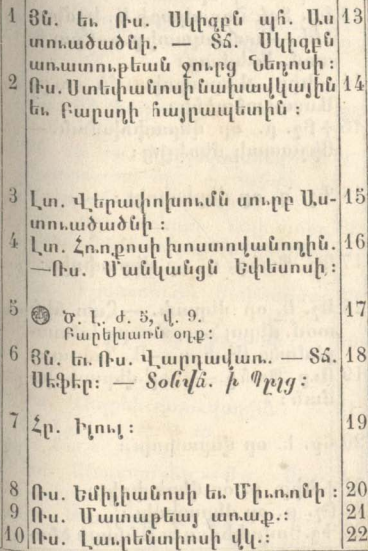 1 Յն. եւ Ռս. Սկիզբն պհ. Աս 13
տուածածնի. — Տճ. Սկիզբն
առատութեան ջուրց Նեղոսի :
2 Ռս. Ստեփանոսի նախավկային 14
եւ Բարսղի հայրապետին :
3 Լտ. Վերափոխումն սուրբ Աս- 15
տուածածնի :
4 Լտ. Հռոքոսի խոստովանողին. 16
—Ռս. Մանկանցն Եփեսոսի :
5 Ծ. Լ. ժ. 5, վ. 9. 17
Բարեխառն օդք :
6 Յն. եւ Ռս. Վարդավառ. — Տճ. 18
Սեֆեր : —
7 Հր. Իլուլ : 19
8 Ռս. Եմիլիանոսի եւ Միւռոնի : 20
9 Ռս. Մատաթեայ առաք. : 21
10 Ռս. Լաւրենտիոսի վկ. : 22